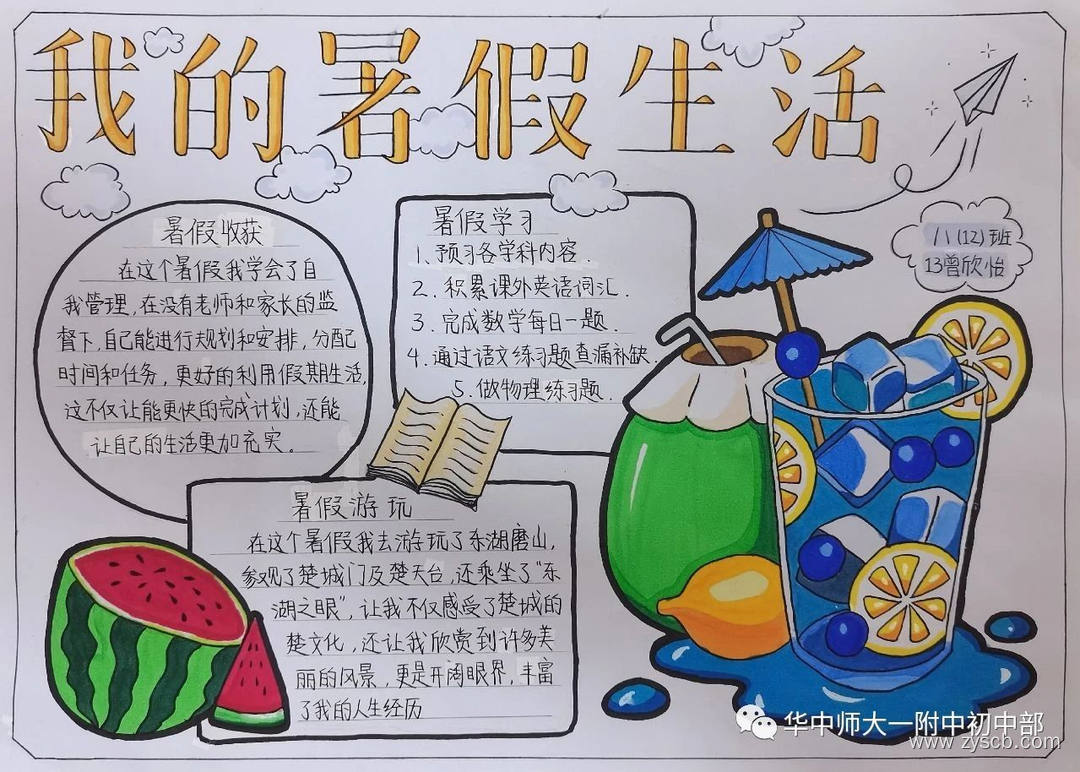 我的暑假生活
八(12)班
13曾欣怡
暑假收获
在这个暑假我学会了自
我管理,在没有老师和家长的监
督下,自己能进行规划和安排,分配
时间和任务,更好的利用假期生活,
这不仅让能更快的完成计划,还能
让自己的生活更加充实。
暑假学习
1、预习各学科内容.
2、积累课外英语词汇.
3、完成数学每日一题.
4、通过语文练习题查漏补缺.
5、做物理练习题.
暑假游玩
在这个暑假我去游玩了东湖磨山,
参观了楚城门及楚天台,还乘坐了“东
湖之眼”,让我不仅感受了楚城的
楚文化,还让我欣赏到许多美
丽的风景,更是开阔眼界,丰富
了我的人生经历
华中师大一附中初中部
www.zyscb.com